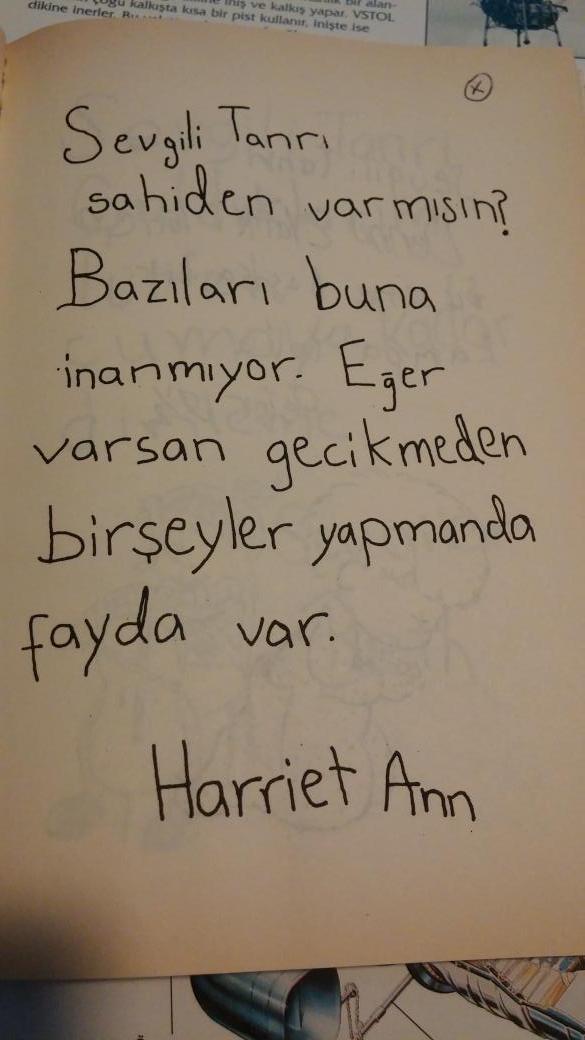 dikine inerler.
kalkışta kısa bir pist kullanır, inişte ise
iniş ve kalkış yapar. VSTOL
x
Sevgili Tanrı
sahiden varmısın?
Bazıları buna
inanmıyor. Eğer
varsan gecikmeden
birşeyler yapmanda
fayda var.
Harriet Ann